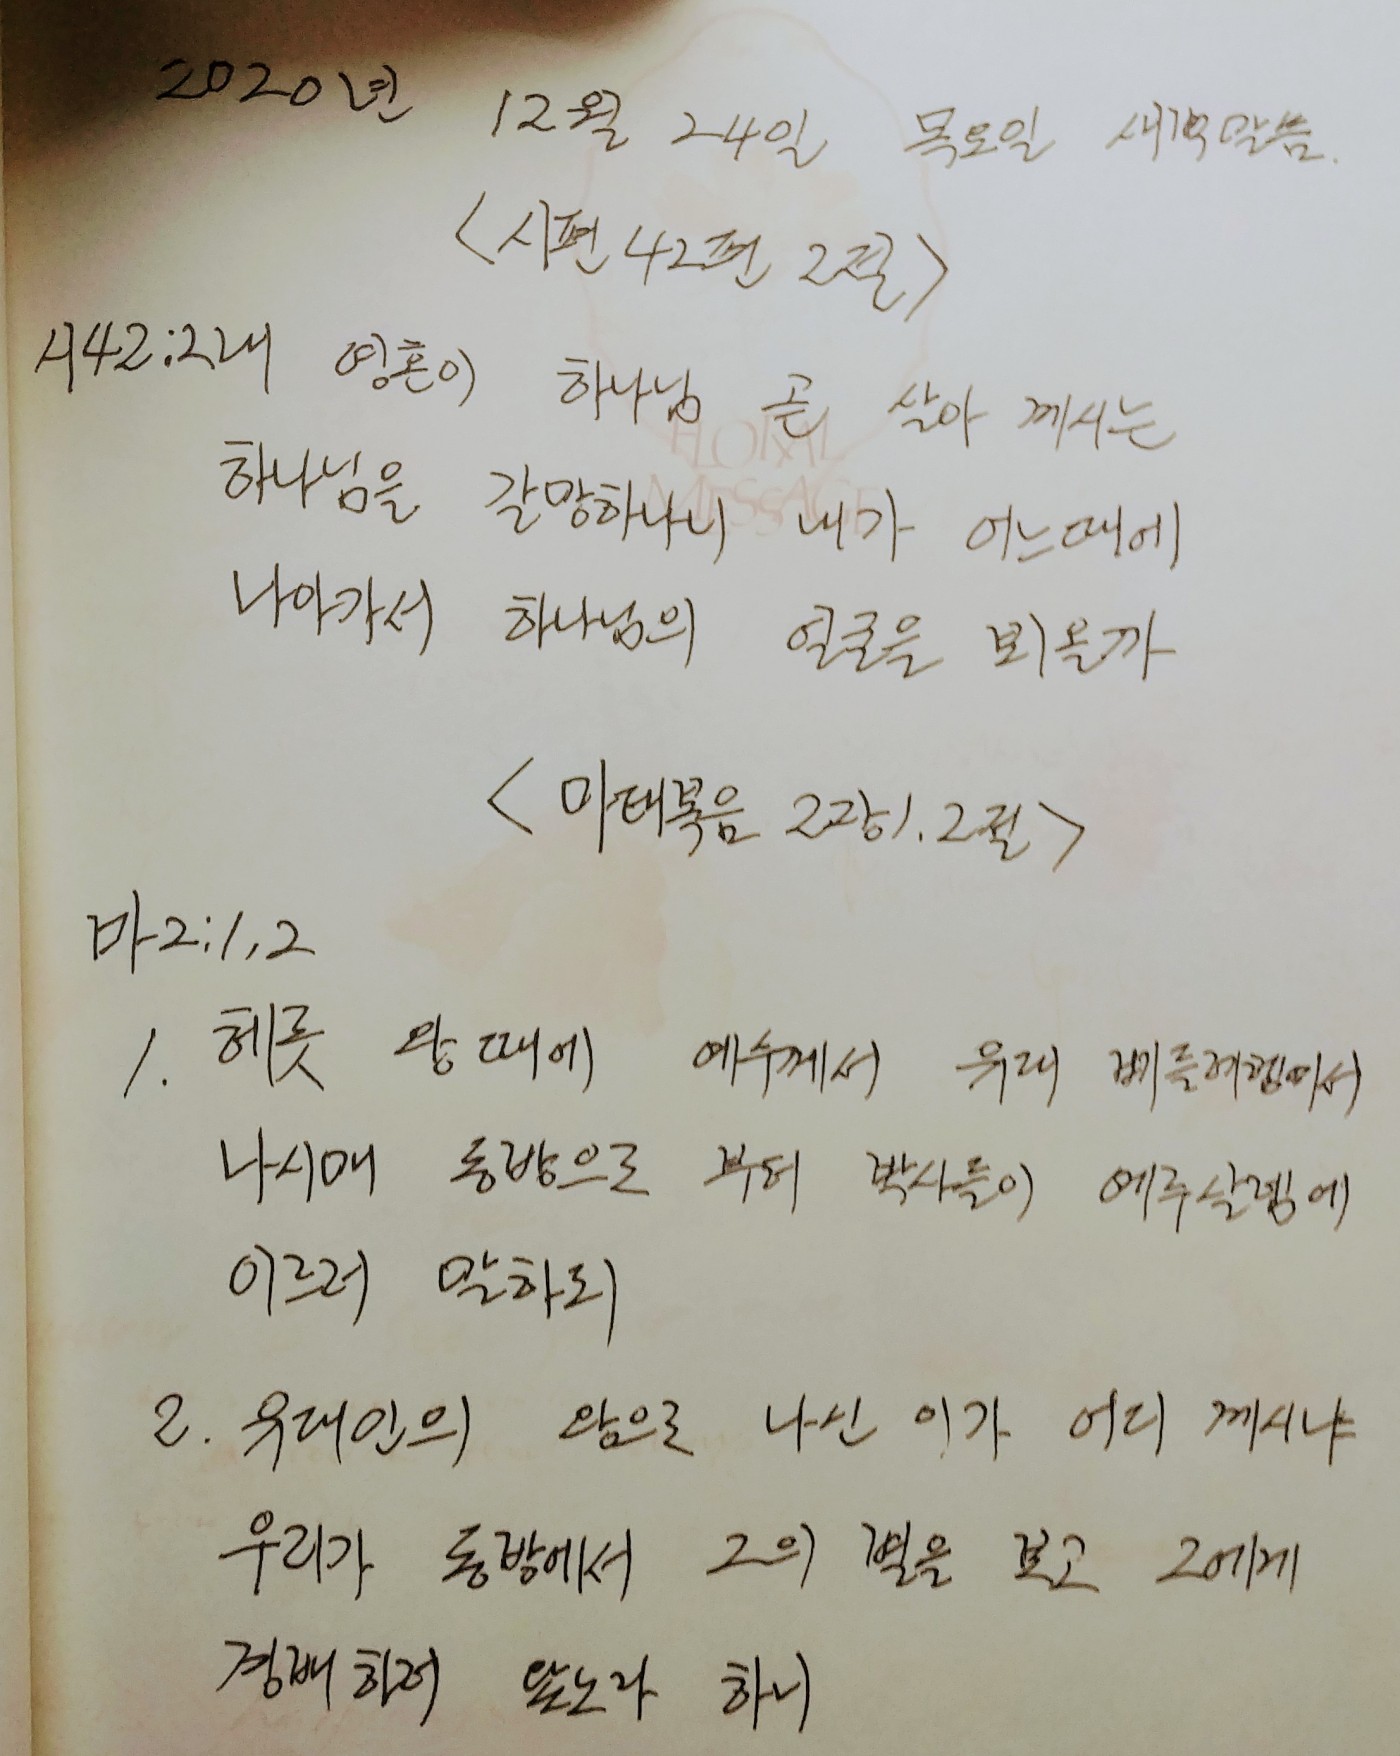 2020년 12월 24일 목요일 새벽말씀.
<시편 42편 2절>
시42:2내 영혼이 하나님 곧 살아 께시는
하나님을 갈망하나니 내가 어느때에
나아가서 하나님의 얼굴을 뵈올까
FLORAL
MESSAGE
<마태복음 2장1.2절>
마2:1,2
1. 헤롯 왕때에 예수께서 유대 베들레헴에서
나시매 동방으로 부터 박사들이 예루살렘에
이르러 말하되
2. 유대인의 왕으로 나신 이가 어디 께시냐
우리가 동방에서 그의 별을 보고 그에게
경배하러 왔노라 하니